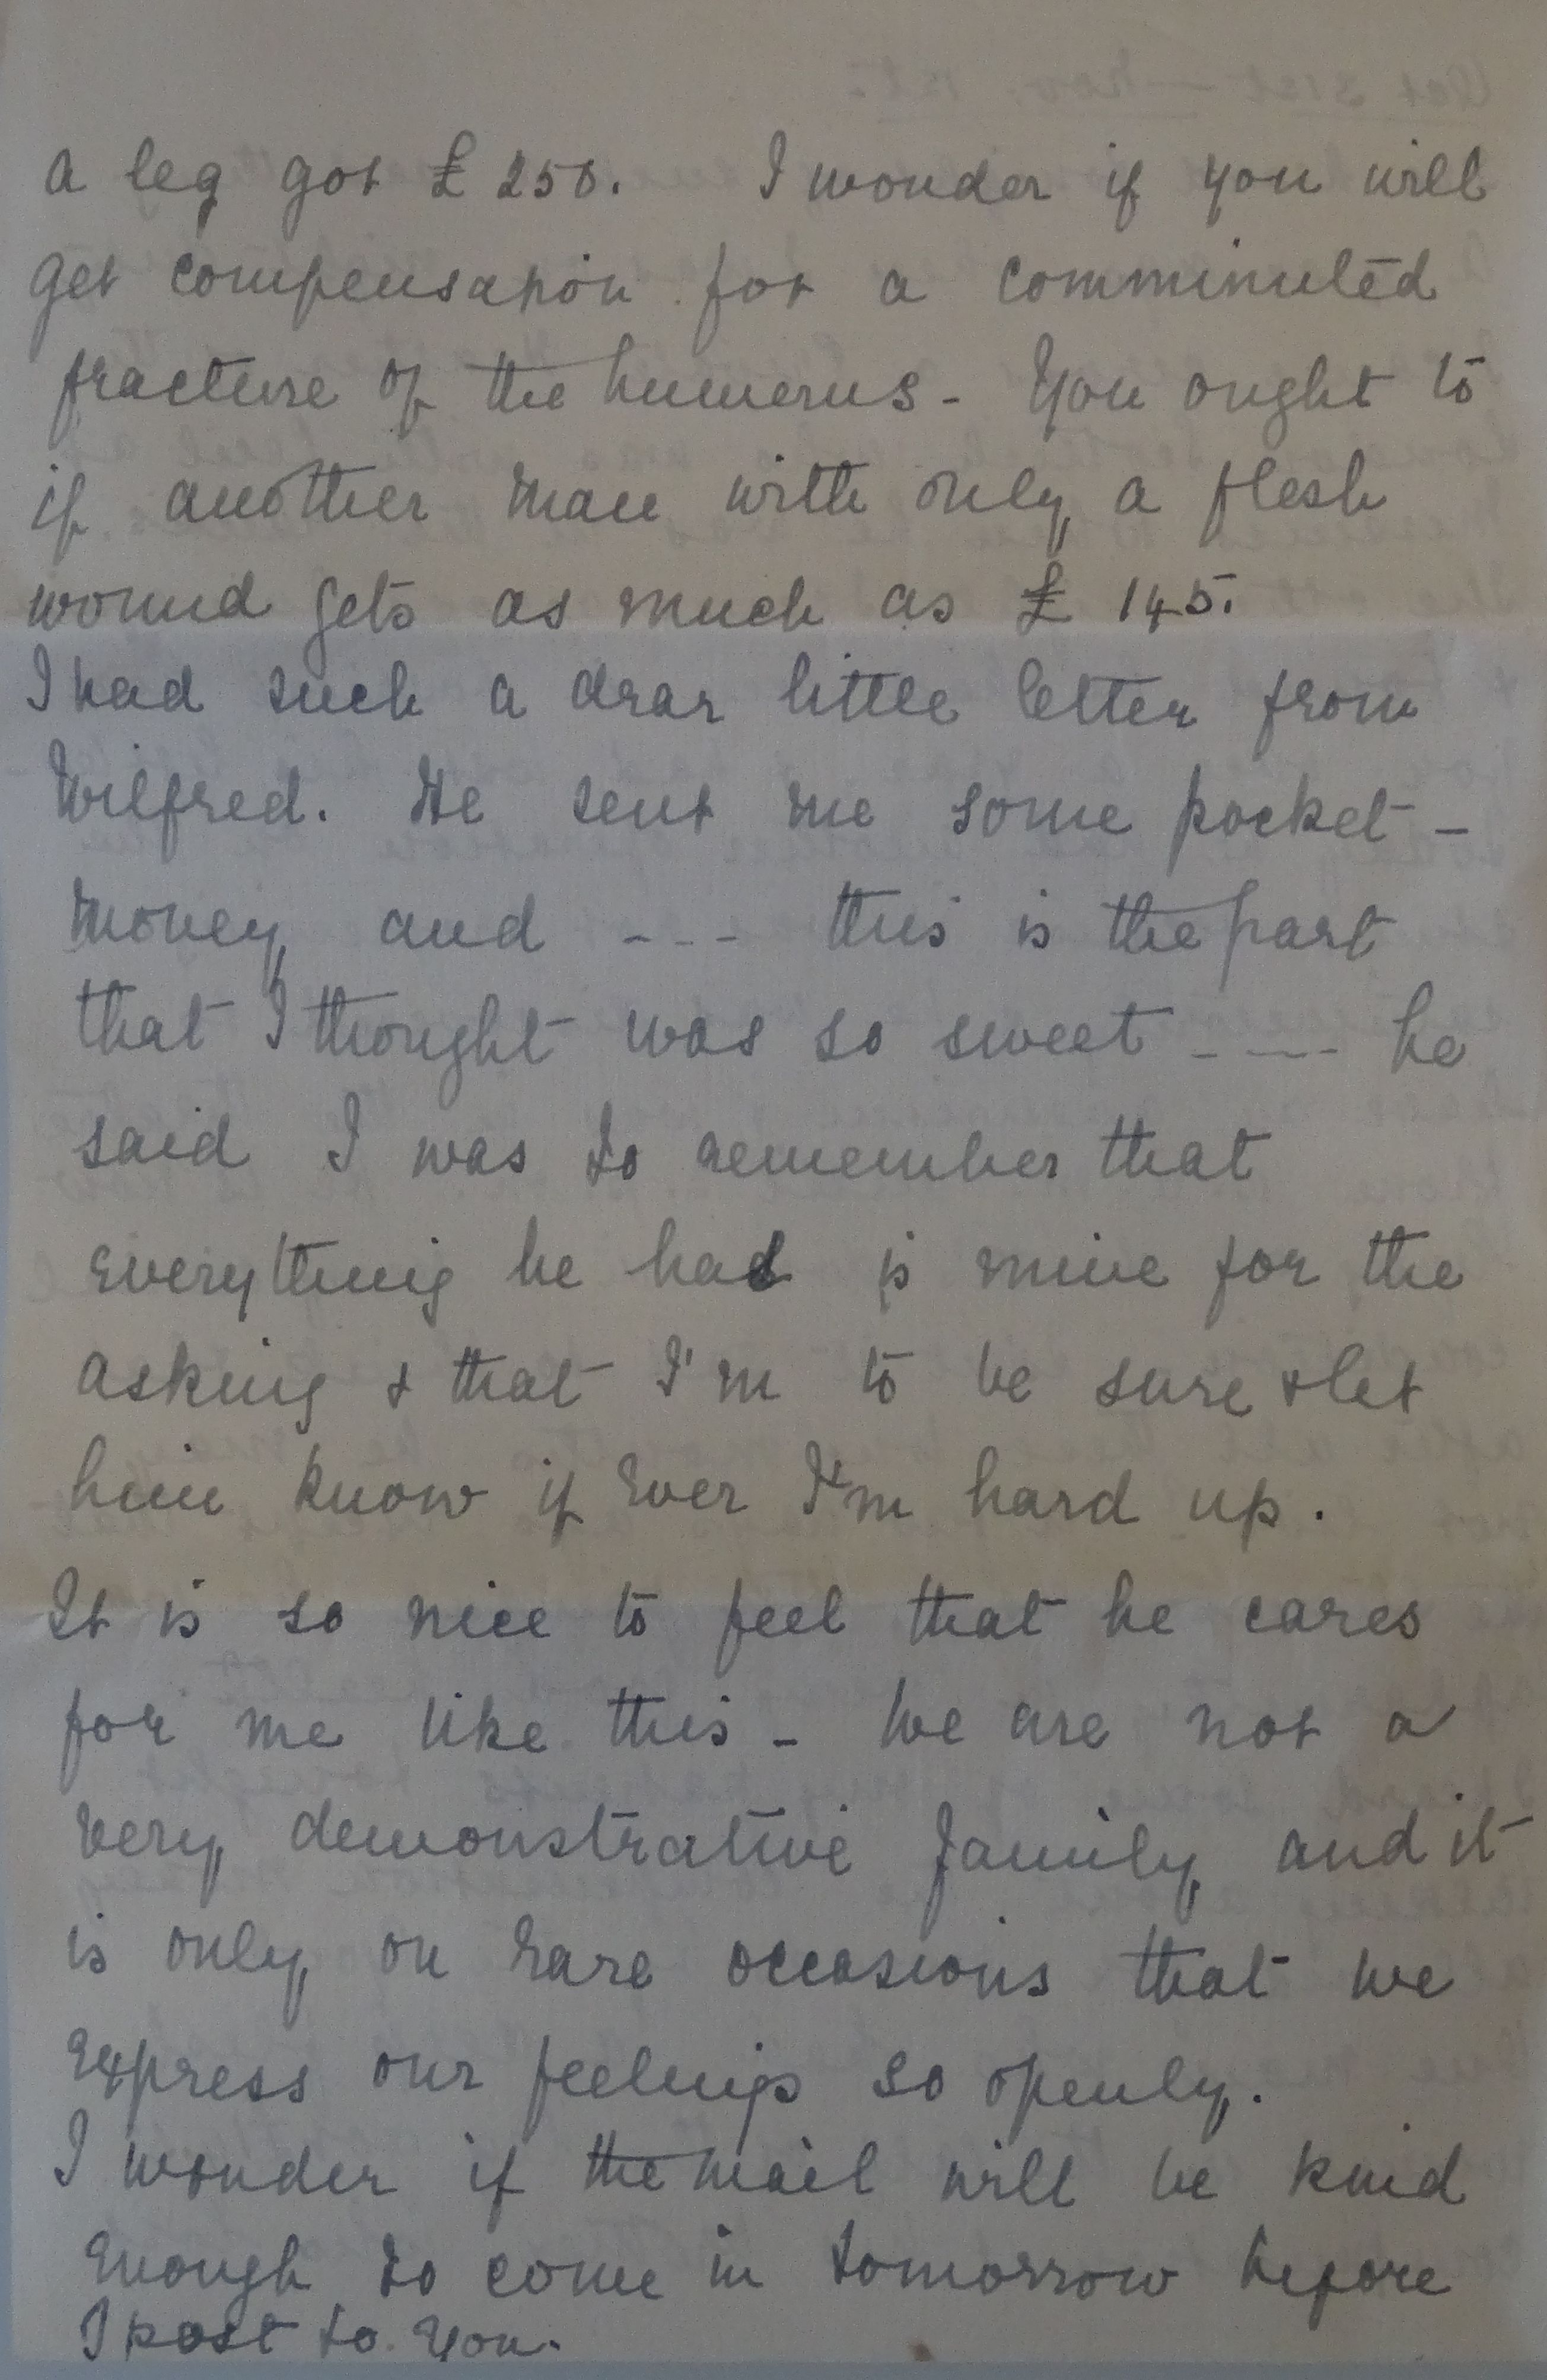 a leg got £250. I wonder if you will
get compensation for a comminuted
fracture of the humerus - You ought to
if another man with only a flesh
wound gets as much as £145.
I had such a dear little letter from
Wilfred. He sent me some pocket-
money and --- this is the part
that I thought was so sweet ---- he
said I was to remember that
everything he has is mine for the
asking & that I'm to be sure & let
him know if ever I'm hard up.
It is so nice to feel that he cares
for me like this - We are not a
very demonstrative family and it
is only on rare occasions that we
express our feelings so openly.
I wonder if the mail will be kind
enough to come in tomorrow before
I post to you.